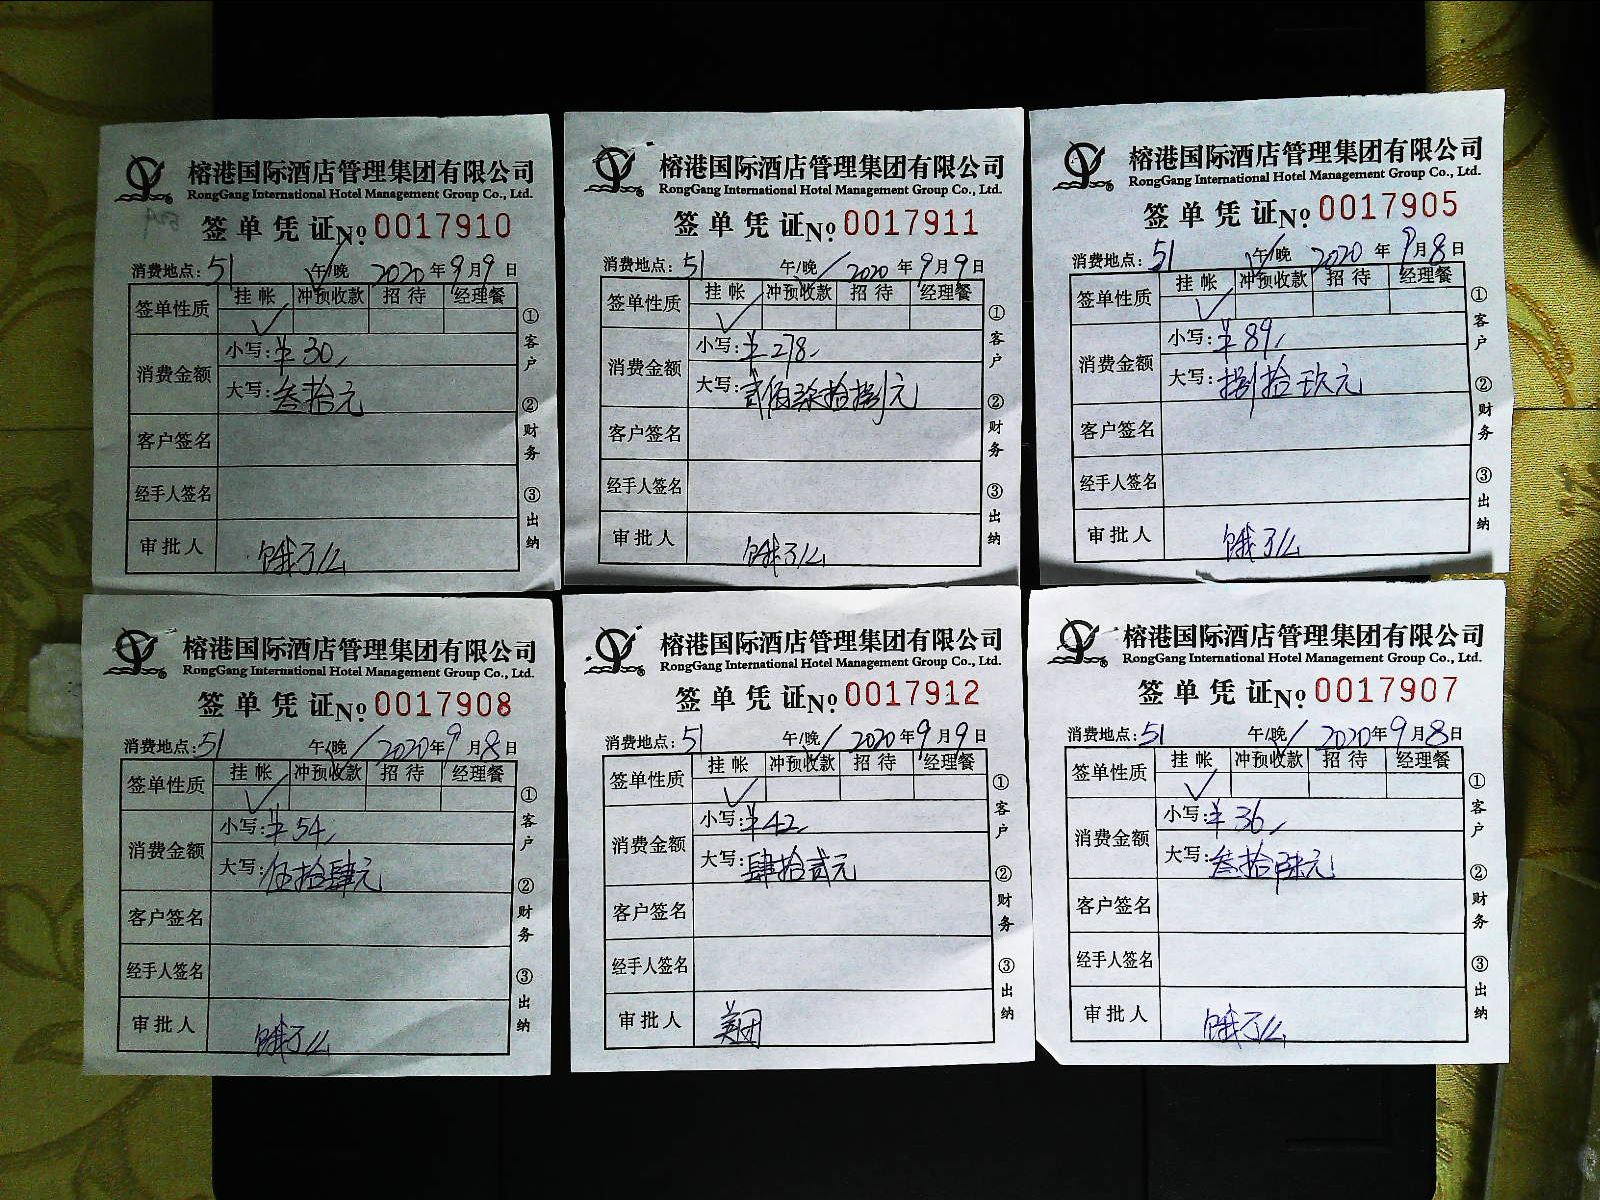 榕港国际酒店管理集团有限公司
RongGang International Hotel Management Group Co., Ltd.
签单凭证№ 0017910
消费地点:51 午/晚 2020年9月9日
签单性质 挂帐 冲预收款 招待 经理餐
✓
消费金额 小写:¥30
大写:叁拾元
客户签名
经手人签名
审批人 饿了么
①客户 ②财务 ③出纳
榕港国际酒店管理集团有限公司
RongGang International Hotel Management Group Co., Ltd.
签单凭证№ 0017911
消费地点:51 午/晚 2020年9月9日
签单性质 挂帐 冲预收款 招待 经理餐
✓
消费金额 小写:¥278
大写:贰佰柒拾捌元
客户签名
经手人签名
审批人 饿了么
①客户 ②财务 ③出纳
榕港国际酒店管理集团有限公司
RongGang International Hotel Management Group Co., Ltd.
签单凭证№ 0017905
消费地点:51 午/晚 2020年9月8日
签单性质 挂帐 冲预收款 招待 经理餐
✓
消费金额 小写:¥89
大写:捌拾玖元
客户签名
经手人签名
审批人 饿了么
①客户 ②财务 ③出纳
榕港国际酒店管理集团有限公司
RongGang International Hotel Management Group Co., Ltd.
签单凭证№ 0017908
消费地点:51 午/晚 2020年9月8日
签单性质 挂帐 冲预收款 招待 经理餐
✓
消费金额 小写:¥54
大写:伍拾肆元
客户签名
经手人签名
审批人 饿了么
①客户 ②财务 ③出纳
榕港国际酒店管理集团有限公司
RongGang International Hotel Management Group Co., Ltd.
签单凭证№ 0017912
消费地点:51 午/晚 2020年9月9日
签单性质 挂帐 冲预收款 招待 经理餐
✓
消费金额 小写:¥42
大写:肆拾贰元
客户签名
经手人签名
审批人 美团
①客户 ②财务 ③出纳
榕港国际酒店管理集团有限公司
RongGang International Hotel Management Group Co., Ltd.
签单凭证№ 0017907
消费地点:51 午/晚 2020年9月8日
签单性质 挂帐 冲预收款 招待 经理餐
✓
消费金额 小写:¥36
大写:叁拾陆元
客户签名
经手人签名
审批人 饿了么
①客户 ②财务 ③出纳